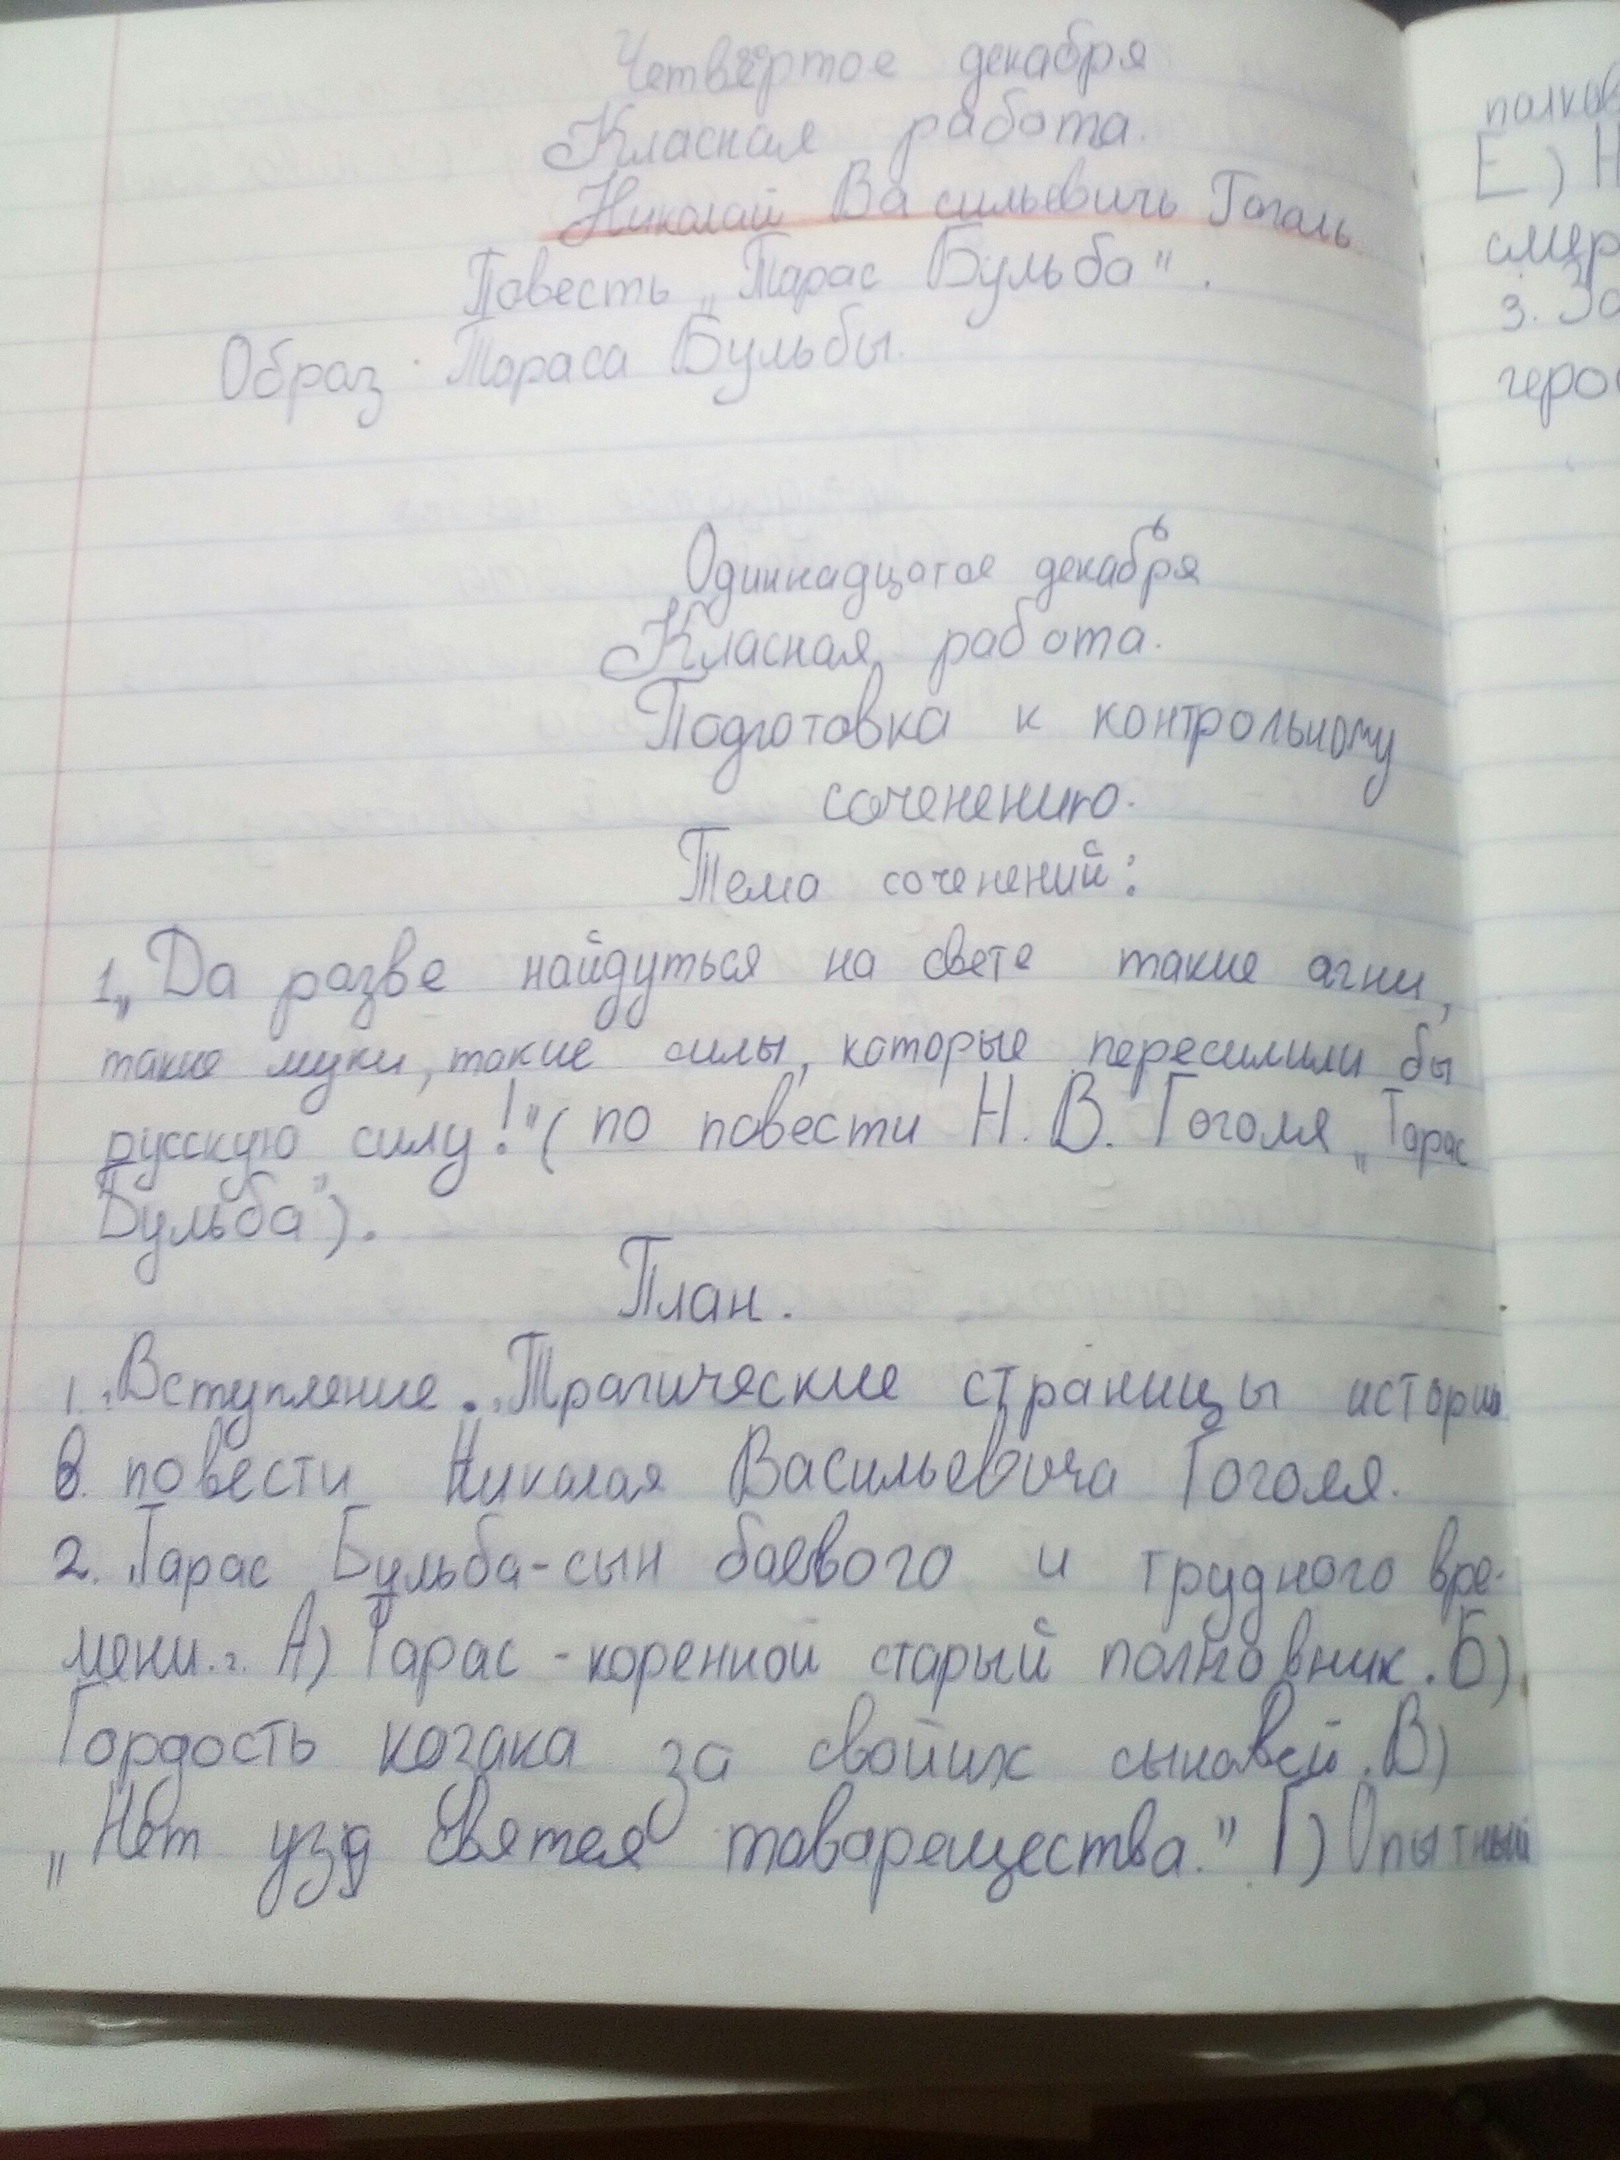 Четвёртое декабря
Класная работа.
Николай Васильевичь Гоголь
Повесть „Тарас Бульба".
Образ Тараса Бульбы.
Одиннадцатое декабря
Класная работа.
Подготовка к контрольному
соченению.
Тема соченений:
1„Да разве найдуться на свете такие агни,
такие муки, такие силы, которые пересилили бы
русскую силу!"(по повести Н. В. Гоголя „Тарас
Бульба").
План.
1. Вступление. Трагические страницы истории
в повести Николая Васильевича Гоголя.
2. Тарас Бульба-сын боевого и трудного вре-
мени. А) Тарас - коренной старый полковник. Б)
Гордость казака за свойих сыновей. В)
„Нет узд святея товарещества." Г) Опытный
полков
Е) Н
смер
3. За
геро